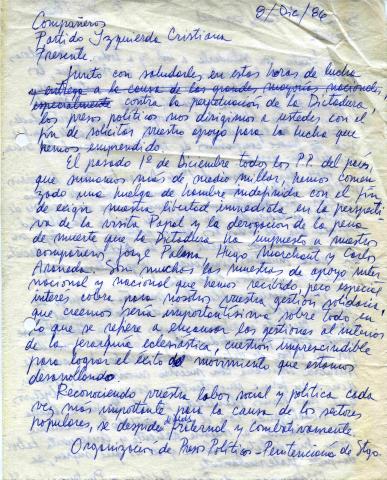 9/Dic/86
Compañeros
Partido Izquierda Cristiana
Presente.
Junto con saludarles en estas horas de lucha
y entrega a la causa de las grandes mayorías nacionales,
especialmente contra la perpetuación de la Dictadura,
los presos políticos nos dirigimos a ustedes con el
fin de solicitar vuestro apoyo para la lucha que
hemos emprendido.
El pasado 1º de Diciembre todos los P.P. del país,
que sumamos más de medio millar, hemos comen-
zado una huelga de hambre indefinida con el fin
de exigir nuestra libertad inmediata en la perspecti-
va de la visita Papal y la derogación de la pena
de muerte que la Dictadura ha impuesto a nuestros
compañeros Jorge Palma, Hugo Marchant y Carlos
Araneda. Son muchas las muestras de apoyo inter
nacional y nacional que hemos recibido, pero especial
interés cobra para nosotros vuestra gestión solidaria,
que creemos sería importantísima sobre todo en
lo que se refiere a encauzar las gestiones al interior
de la jerarquía eclesiástica, cuestión imprescindible
para lograr el éxito del movimiento que estamos
desarrollando.
Reconociendo vuestra labor social y política cada
vez más importante para la causa de los sectores
populares, se despide fraternal y combativamente
Organización de Presos Políticos - Penitenciaría de Stgo.